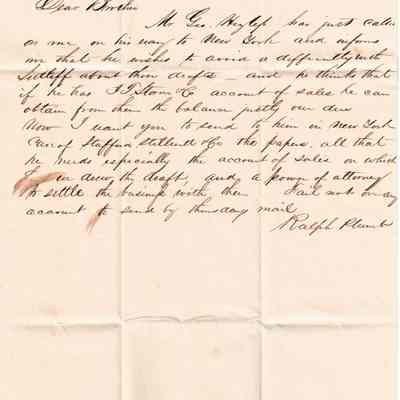 Dear Brother
Mr Geo. has just called
on me on his way to New York and informs
me that he wishes to avoid a difficulty with
Sutliff about them drafts – and he thinks that
if he has account of sales he can
obtain from them the balance justly our due
Now I want you to send to him in New York
Care of & Co the papers, all that
he needs especially the account of sales on which
drew the draft, and a power of attorney
to settle the business with them Fail not on any
account to send by thursdays mail
Ralph Plumb